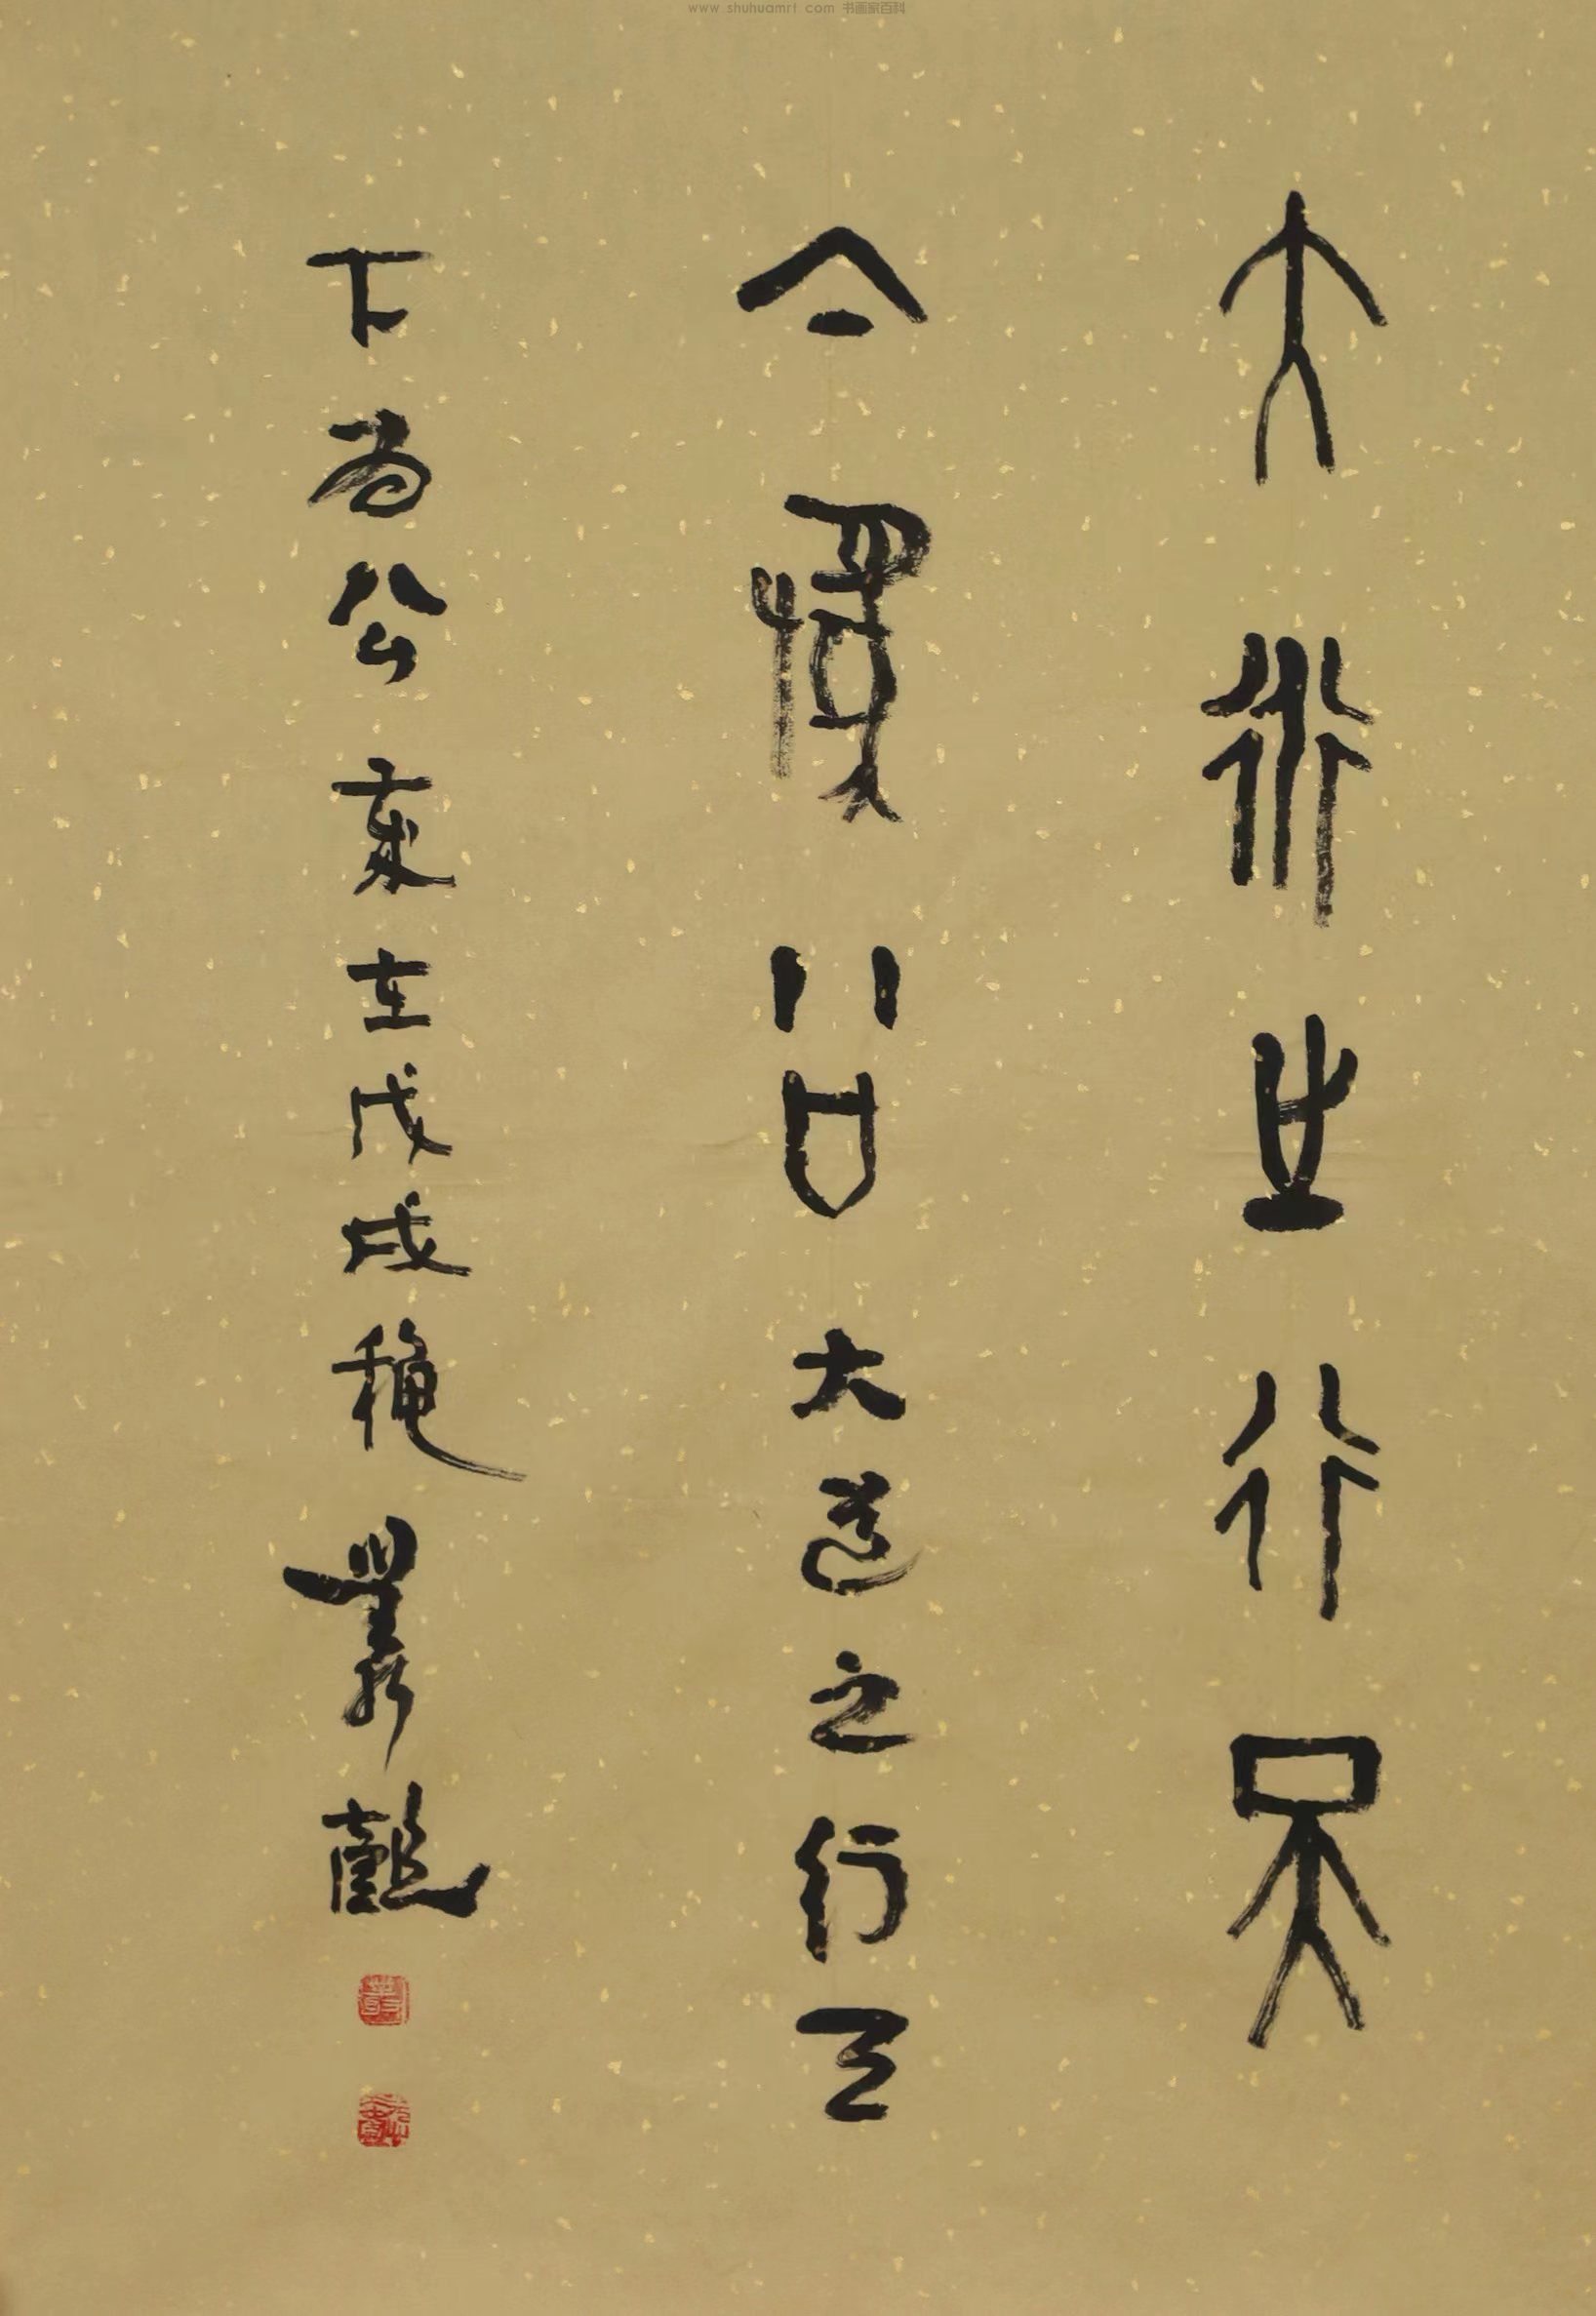 www.shuhuamrt.com 书画家百科
大道之行天
下為公大道之行天
下為公歲在戊戌穐